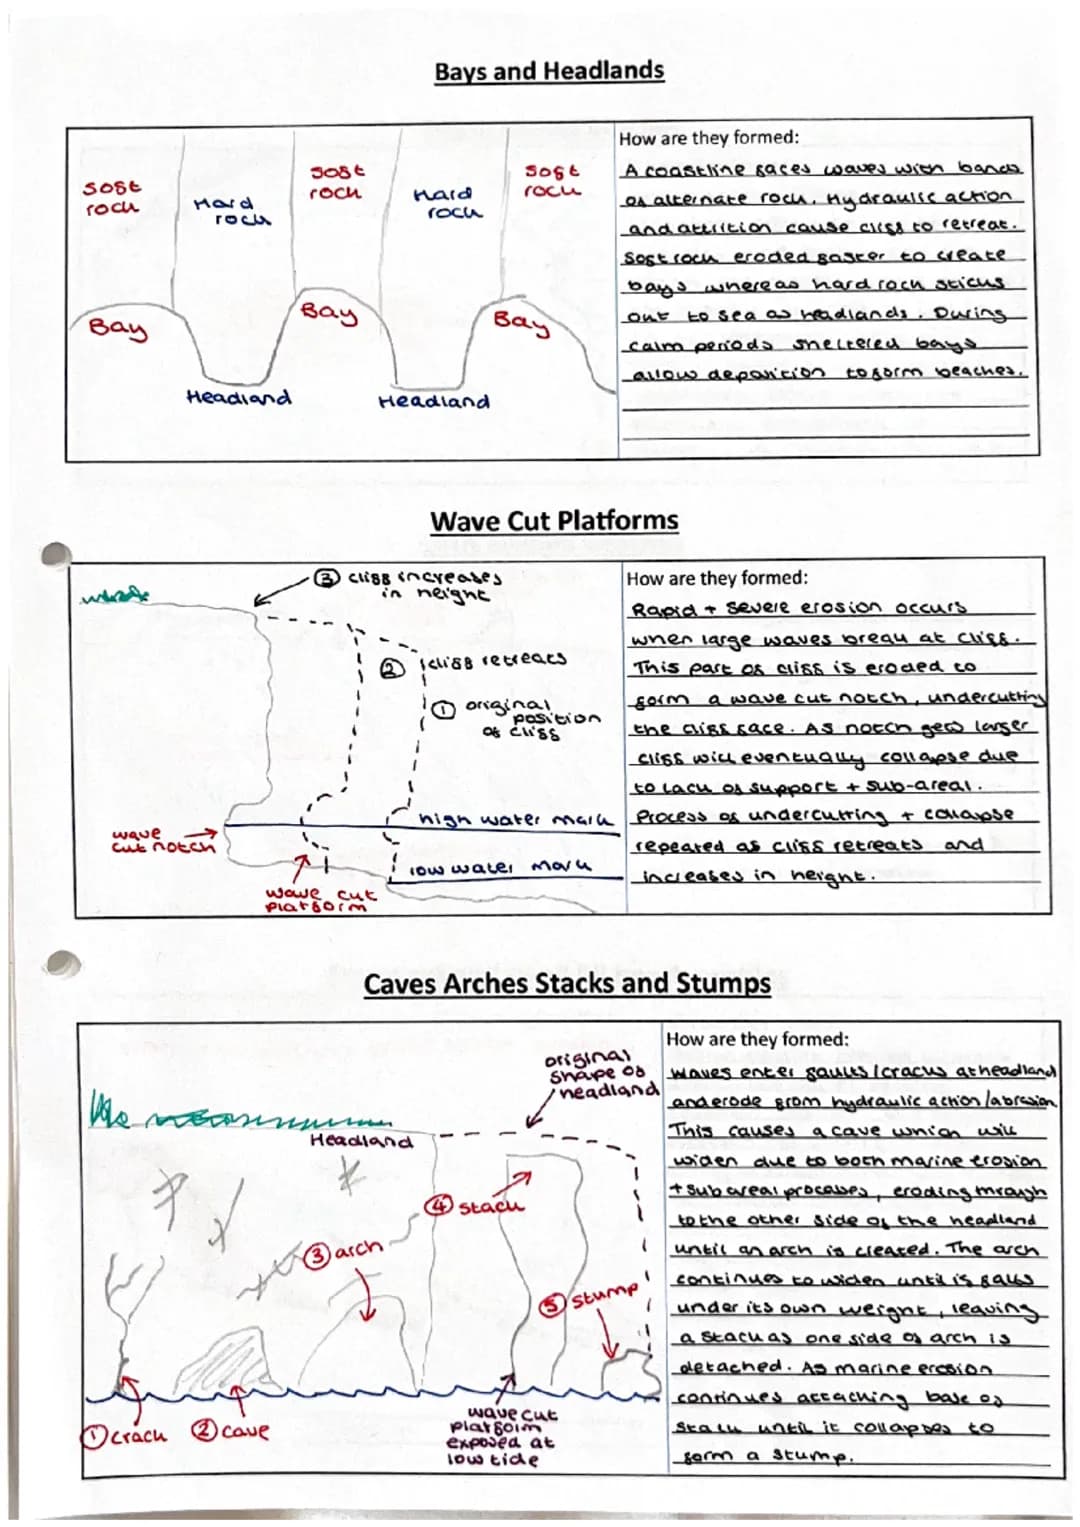 Bays and Headlands
soft
rock
Hard
rock
soft
rock
Hard
rock
soft
rock
Bay
Bay
Bay
Headland
Headland
How are they formed:
A coastline faces waves with bands
of alternate rock. Hydraulic action
and attrition cause cliff to retreat.
Soft rock eroded faster to create
bays whereas hard rock sticks
out to sea as headlands. During
calm periods sheltered bays
allow deposition to form beaches.
Wave Cut Platforms
③ cliff increases
in height
② cliff retreats
① original
position
of cliff
high water mark
low water mark
wave
cut notch
wave cut
platform
How are they formed:
Rapid + severe erosion occurs
when large waves break at cliff.
This part of cliff is eroded to
form a wave cut notch, undercutting
the cliff face. As notch gets larger
cliff will eventually collapse due
to lack of support + sub-areal.
Process of undercutting + collapse
repeated as cliff retreats and
increases in height.
Caves Arches Stacks and Stumps
original
shape of
headland
Headland
④ stack
③ arch
⑤ stump
① crack
② cave
wave cut
platform
exposed at
low tide
How are they formed:
waves enter faults/cracks at headland
and erode from hydraulic action/abrasion
This causes a cave which will
widen due to both marine erosion
+ sub areal processes, eroding through
to the other side of the headland
until an arch is created. The arch
continues to widen until is falls
under its own weight, leaving
a stack as one side of arch is
detached. As marine erosion
continues attacking base of
stack until it collapses to
form a stump.